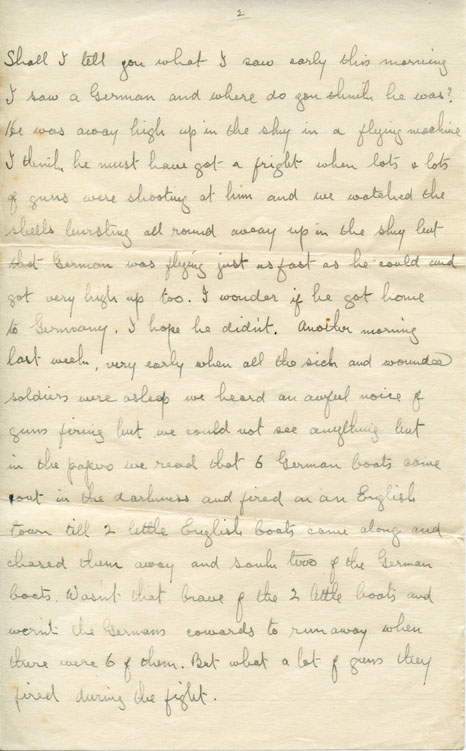 2
Shall I tell you what I saw early this morning
I saw a German and where do you think he was?
He was away high up in the sky in a flying machine
I think he must have got a fright when lots & lots
of guns were shooting at him and we watched the
shells bursting all round away up in the sky but
that German was flying just as fast as he could and
got very high up too. I wonder if he got home
to Germany. I hope he didn't. Another morning
last week, very early when all the sick and wounded
soldiers were asleep we heard an awful noice of
guns firing but we could not see anything but
in the papers we read that 6 German boats came
out in the darkness and fired on an English
town till 2 little English boats came along and
chased them away and sank two of the German
boats. Wasn't that brave of the 2 little boats and
wern't the Germans cowards to run away when
there were 6 of them. But what a lot of guns they
fired during the fight.